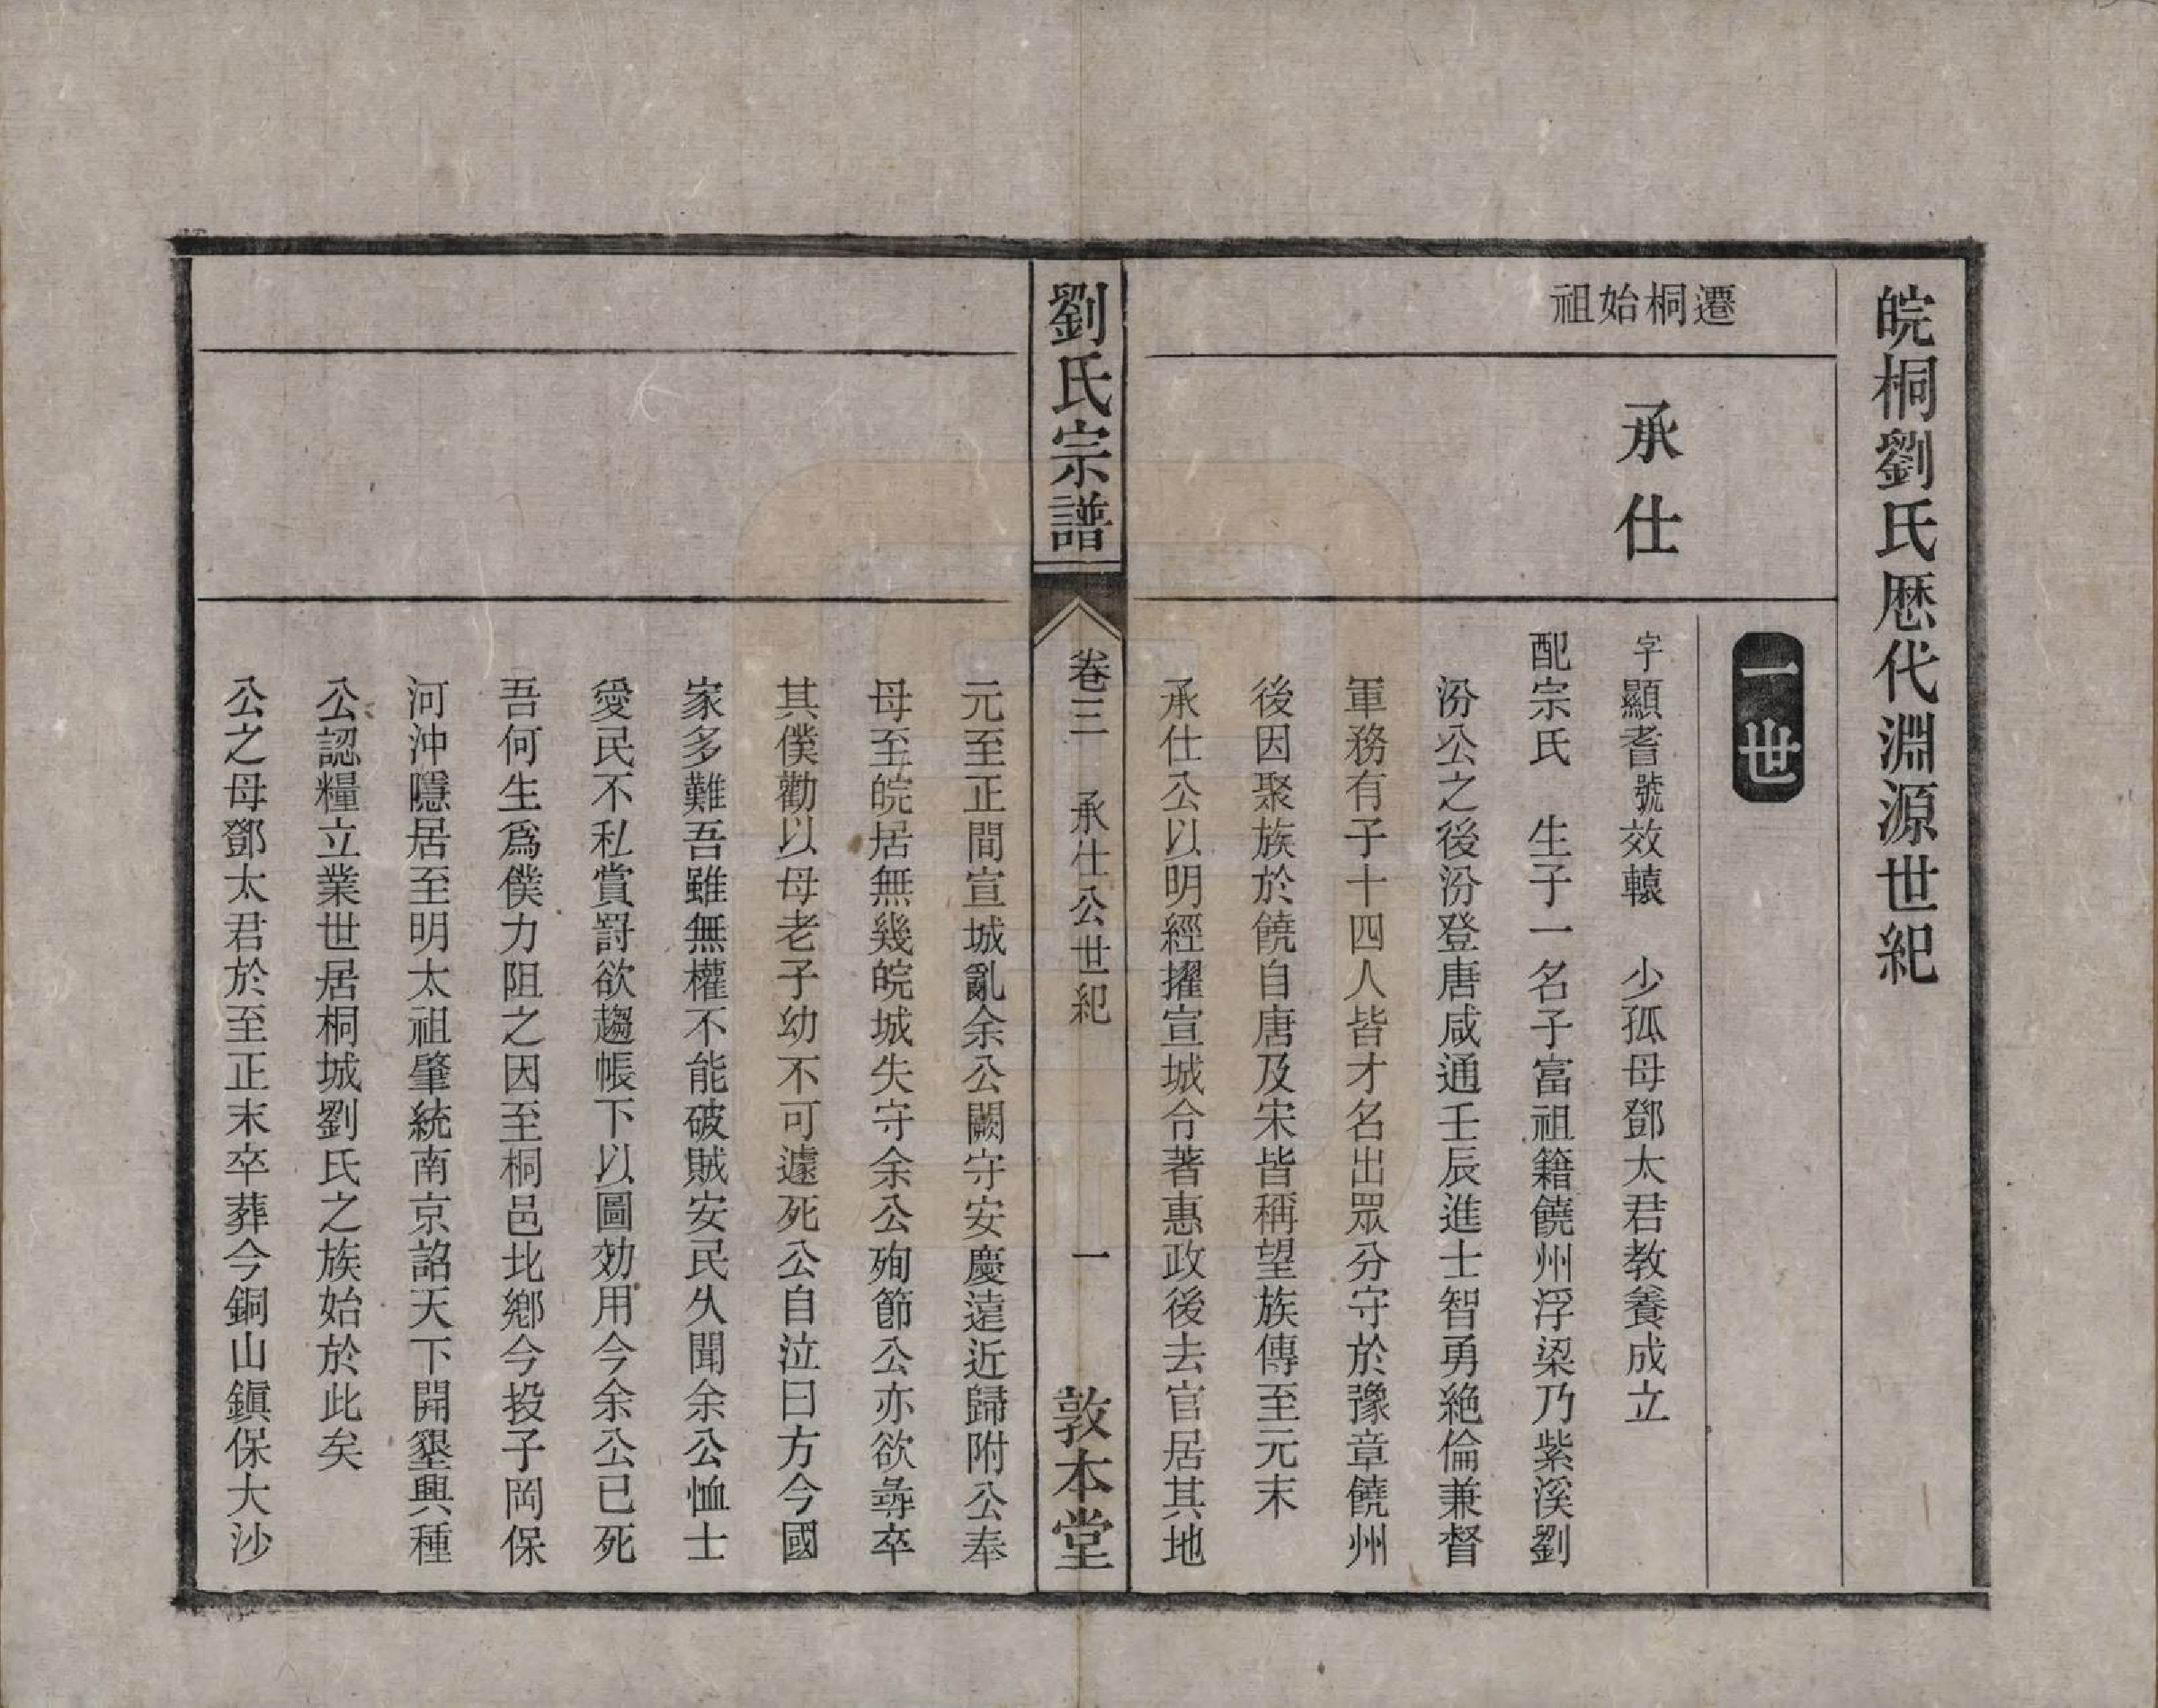 皖桐劉氏歷代淵源世紀
遷桐始祖
承仕
一世
字顯耆號效轅　少孤母鄧太君教養成立
配宗氏　生子一名子富祖籍饒州浮梁乃紫溪劉
汾公之後汾登唐咸通壬辰進士智勇絶倫兼督
軍務有子十四人皆才名出眾分守於豫章饒州
後因聚族於饒自唐及宋皆稱望族傳至元末
承仕公以明經擢宣城令著惠政後去官居其地
劉氏宗譜
卷三　承仕公世紀
一
敦本堂
元至正間宣城亂余公闕守安慶遠近歸附公奉
母至皖居無幾皖城失守余公殉節公亦欲尋卒
其僕勸以母老子幼不可遽死公自泣曰方今國
家多難吾雖無權不能破賊安民久聞余公恤士
愛民不私賞罰欲趨帳下以圖効用今余公已死
吾何生爲僕力阻之因至桐邑北鄉今投子岡保
河沖隱居至明太祖肇統南京詔天下開墾興種
公認糧立業世居桐城劉氏之族始於此矣
公之母鄧太君於至正末卒葬今銅山鎮保大沙